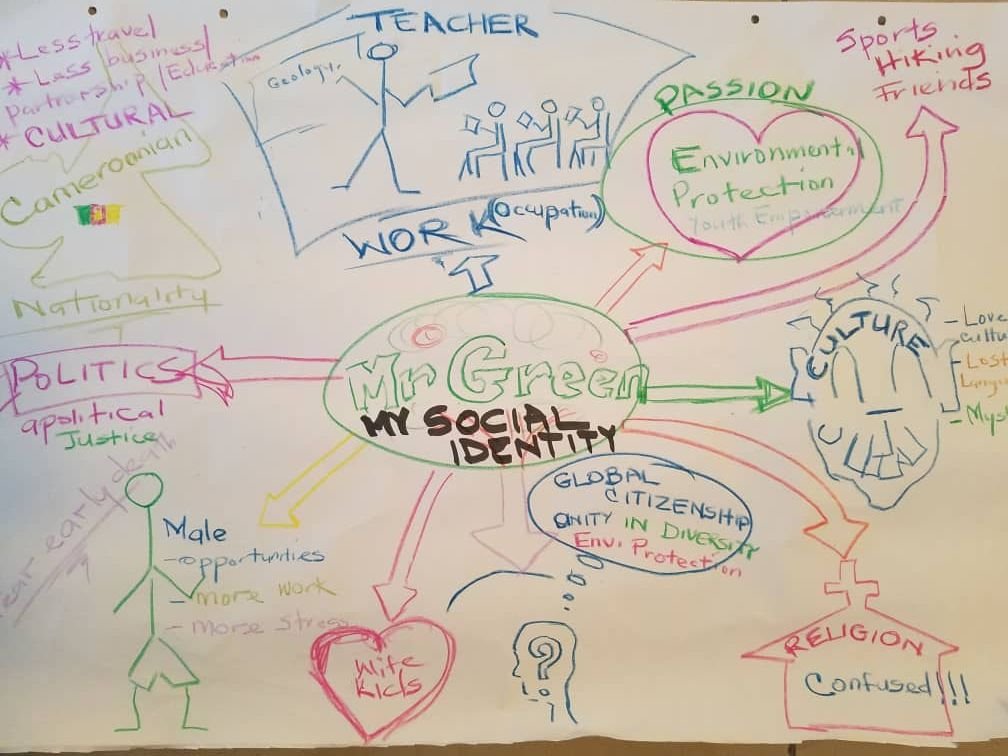 *Less travel
*Less business/
partnership/Education
* CULTURAL
Cameroonian
Nationality
TEACHER
Geology,
WORK (Occupation)
PASSION
Environmental
Protection
Youth Empowerment
Sports
Hiking
Friends
POLITICS
apolitical
Justice
Mr Green
MY SOCIAL
IDENTITY
CULTURE
- Love
cultu
- Lost
Langu
- Myst
early death
Male
- opportunities
- more work
- morse stress
Wife
Kids
GLOBAL
CITIZENSHIP
UNITY IN DIVERSITY
Env. Protection
?
RELIGION
Confused!!!